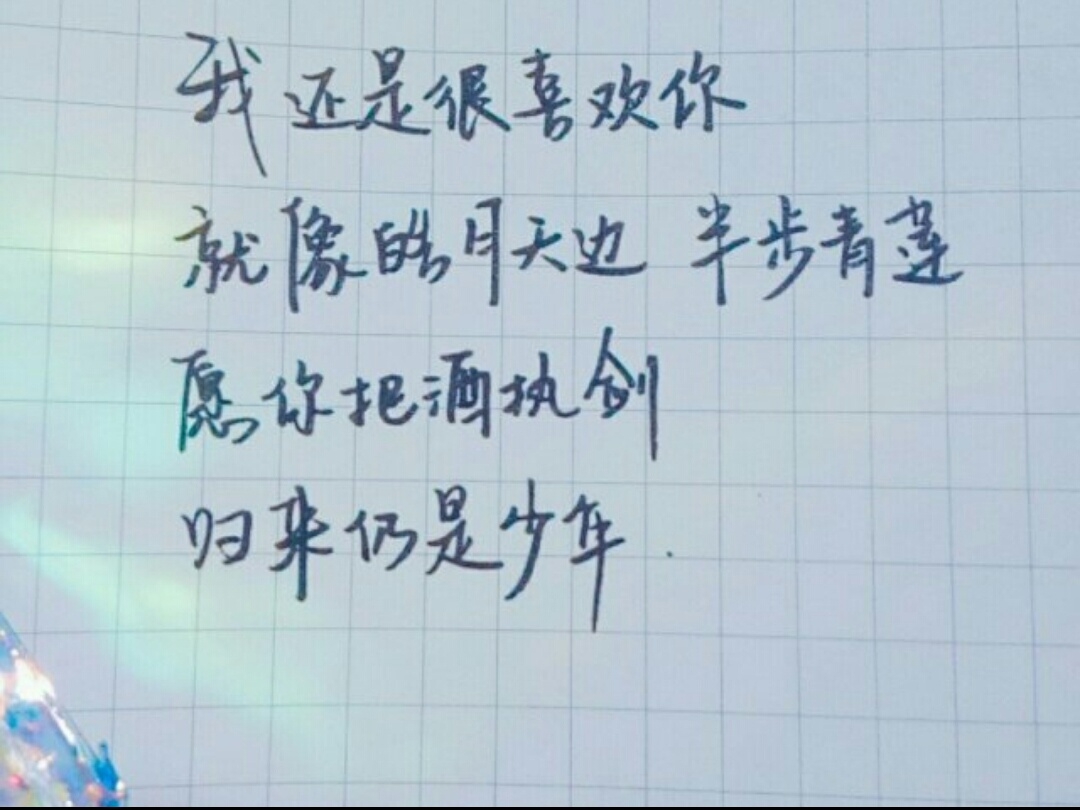 我还是很喜欢你
就像皓月天边 半步青莲
愿你把酒执剑
归来仍是少年.